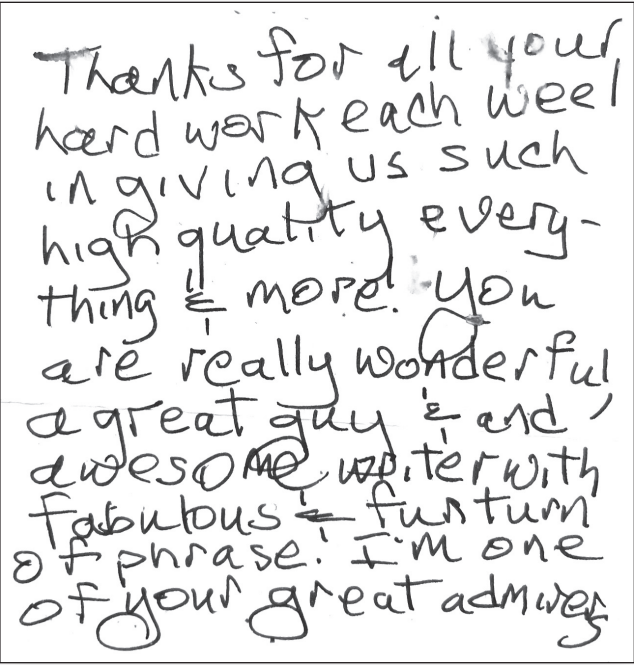 Thanks for all your
hard work each weel
in giving us such
high quality every-
thing & more! you
are really wonderful,
a great guy & and
awesome writer with
fabulous & fun turn
of phrase! I'm one
of your great admirers